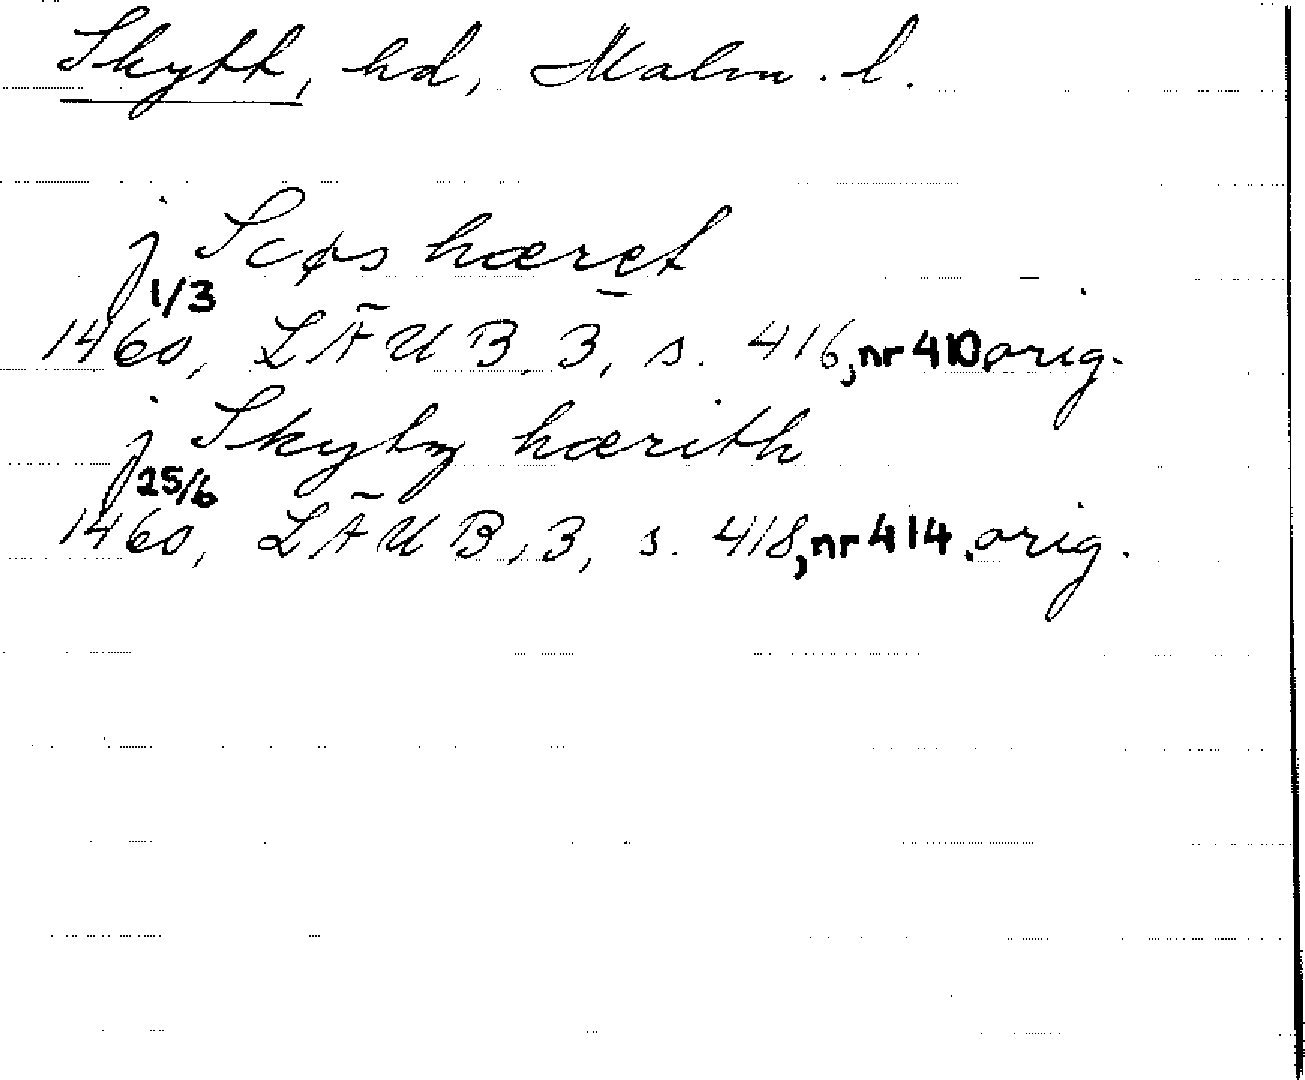 Skytt, hd, Malm. l.
j Scøs hæret
1/3
1460, LÄUB, 3, s. 416, nr 410, orig.
j Skytz hærith
25/6
1460, LÄUB, 3, s. 418, nr 414. orig.